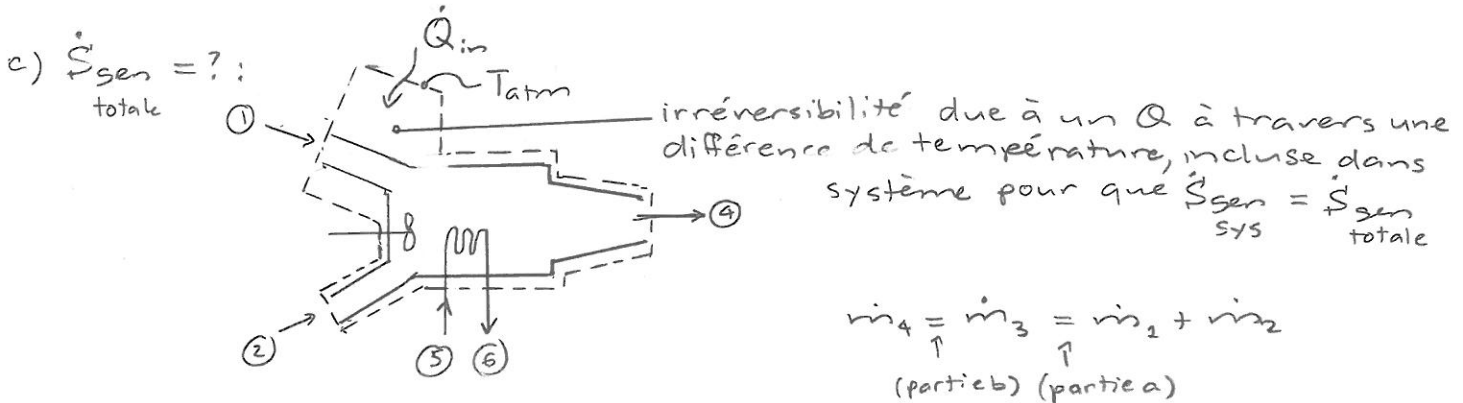 c) Ṡgen = ? :
totale
Q̇in
Tatm
①
irréversibilité due à un Q à travers une
différence de température, incluse dans
système pour que Ṡgen = Ṡgen
sys totale
④
②
⑤ ⑥
ṁ4 = ṁ3 = ṁ1 + ṁ2
↑ ↑
(partie b) (partie a)